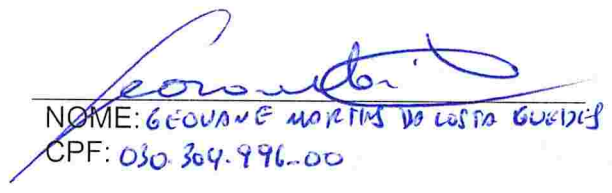 NOME: GEOVANE MARTINS DA COSTA GUEDES
CPF: 030.304.996-00